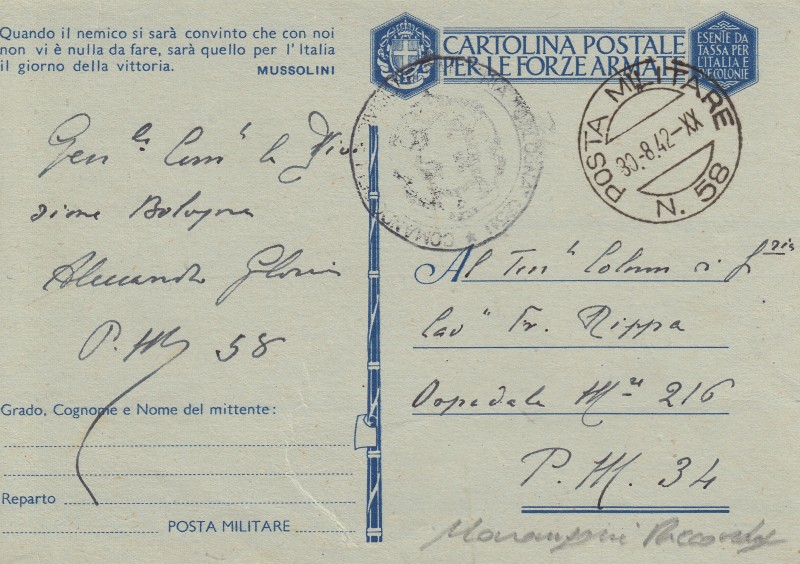 Quando il nemico si sarà convinto che con noi
non vi è nulla da fare, sarà quello per l'Italia
il giorno della vittoria. MUSSOLINI
CARTOLINA POSTALE
PER LE FORZE ARMATE
ESENTE DA
TASSA PER
L'ITALIA E
LE COLONIE
POSTA MILITARE
30.8.42-XX
N. 58
COMANDO
Gen le Com te la Divi
sione Bologna
Alessandro Gloria
P.M. 58
Grado, Cognome e Nome del mittente:
Reparto
POSTA MILITARE
Al Ten te Colonn
Cav Fr. Rippa
Ospedale M re 216
P.M. 34